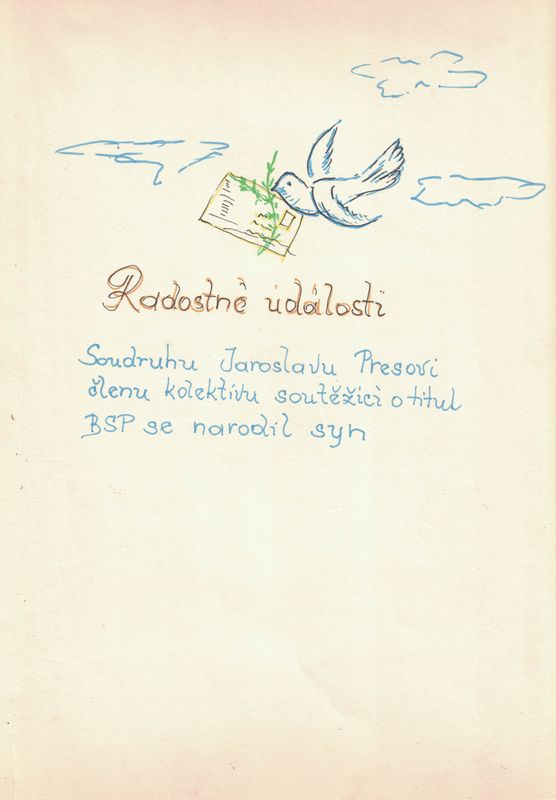 Radostné události
Soudruhu Jaroslavu Presovi
členu kolektivu soutěžící o titul
BSP se narodil syn